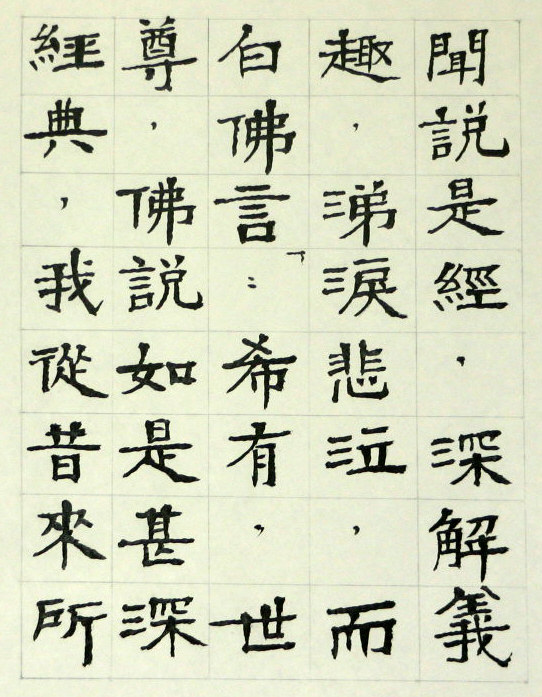 聞說是經，深解義
趣，涕淚悲泣，而
白佛言：「希有，世
尊，佛說如是甚深
經典，我從昔來所